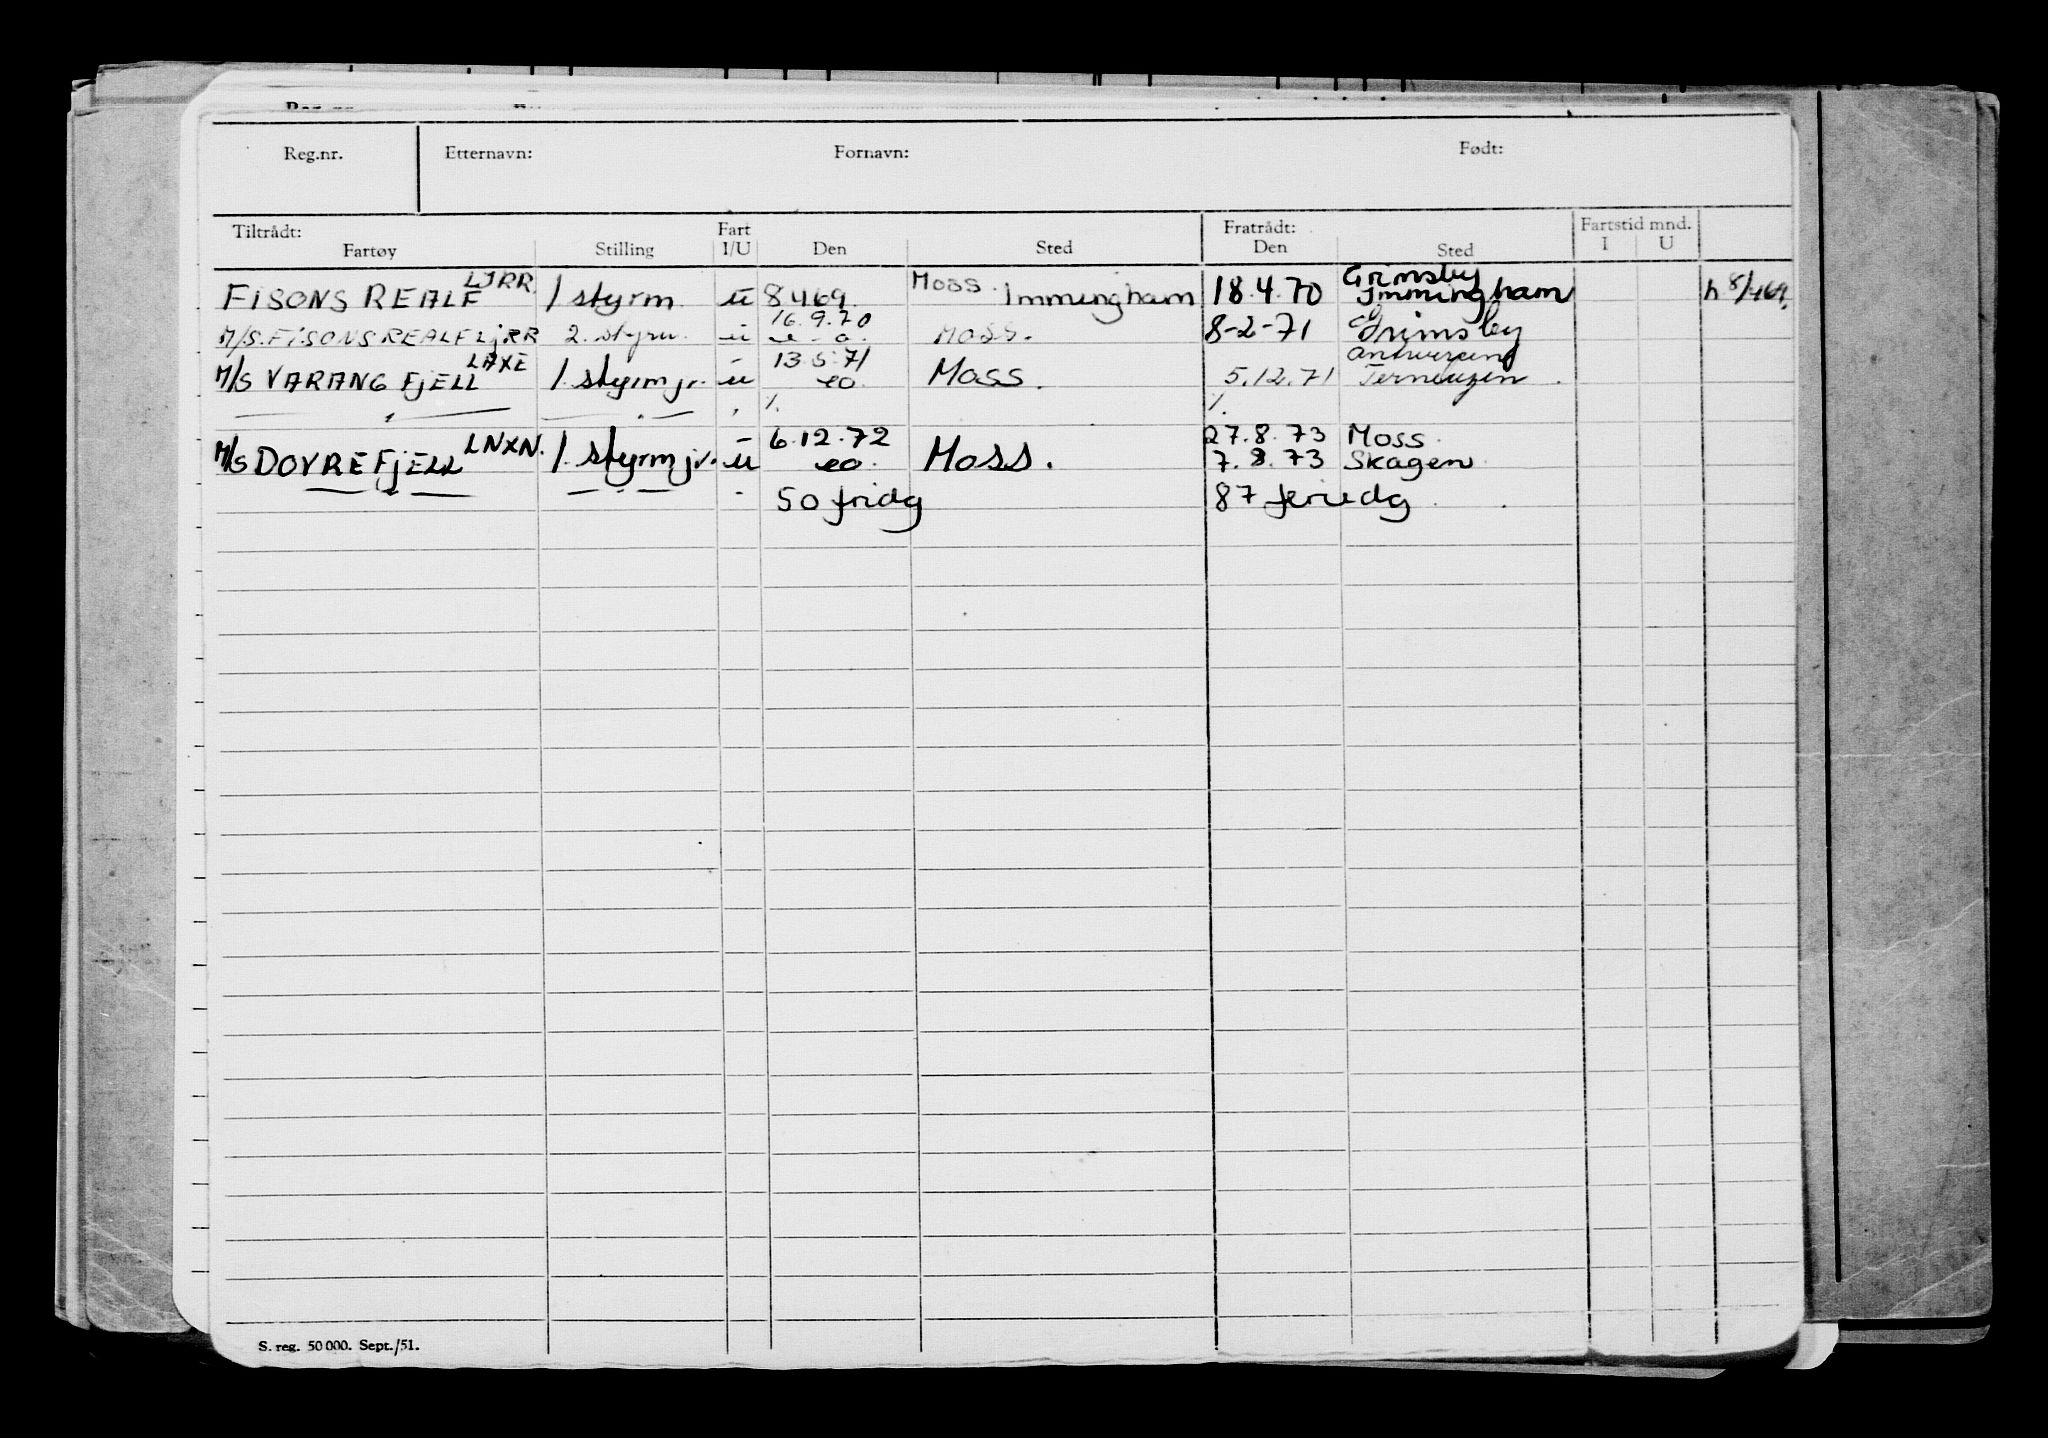 Reg.nr. Etternavn: Fornavn: Født:
Tiltrådt: Fart Fratrådt: Fartstid mnd.
Fartøy Stilling I/U Den Sted Den Sted I U
LJRR. Moss. Grimsby
FISONS REALF 1 styrm ū 8469. Immingham 18.4.70 Immingham h 8/469.
16.9.70
M/S. FISONSREALF LJRR 2. styrm. ū e-o. Moss. 8-2-71 Grimsby
LAXE 13.5.71 Antwerpen
M/S VARANGFJELL 1. styrm jr. ū eo. Moss. 5.12.71 Terneuzen.
— " — — . — , /. /.
LNXN. 6.12.72 27.8.73 Moss.
M/S DOVREFJELL 1. styrm jr. ū eo. Moss. 7.8.73 Skagen
— " — — . — - 50 fridg 87 feriedg.
S. reg. 50 000. Sept./51.